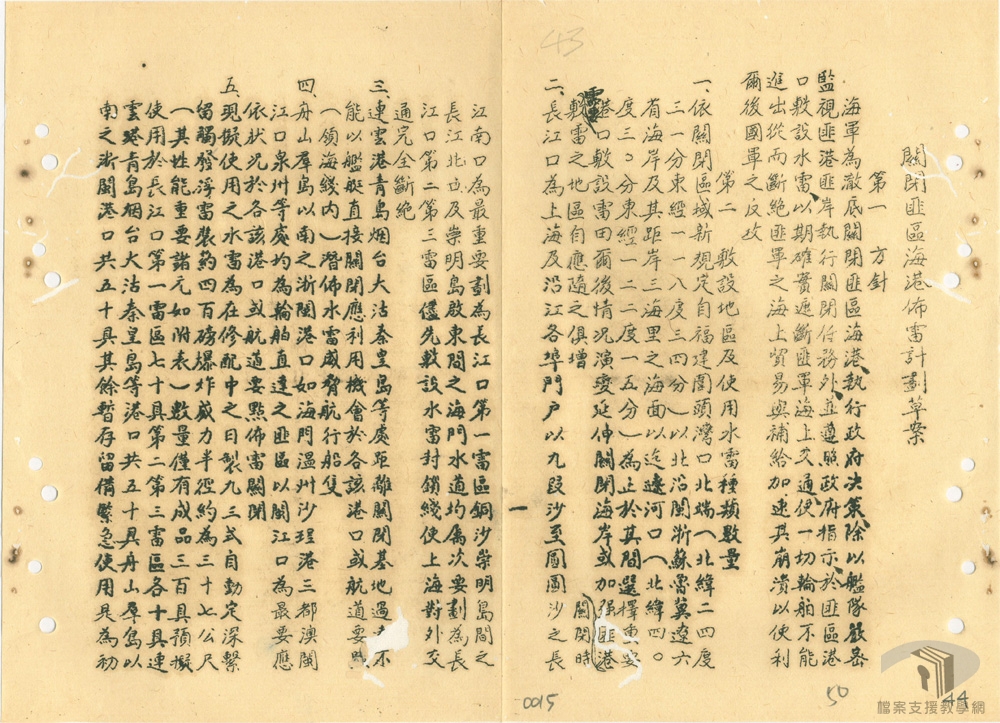 43
關閉匪區海港佈雷計劃草案
第一 方針
海軍為澈底關閉匪區海港執行政府決策除以艦隊嚴密
監視匪港匪岸執行關閉任務外並遵照政府指示於匪區港
口敷設水雷以期確實遮斷匪軍海上交通使一切輪舶不能
進出從而斷絕匪軍之海上貿易與補給加速其崩潰以便利
爾後國軍之反攻
第二 敷設地區及使用水雷種類數量
一、依關閉區域新規定自福建圍頭灣口北端(北緯二四度
三一分東經一一八度三四分)以北沿閩浙蘇魯冀遼六
省海岸及其距岸三海里之海面以迄遼河口(北緯四〇
度三〇分東經一二二度一五分)為止於其間選擇重要
港口敷設雷田爾後情況演變延伸關閉海岸或加强匪港
關閉時
敷雷之地區自應隨之俱增
二、長江口為上海及沿江各埠門户以九段沙至圓圓沙之長
一
江南口為最重要劃為長江口第一雷區銅沙崇明島間之
長江北
及崇明島啟東間之海門水道均屬次要劃為長
江口第二第三雷區儘先敷設水雷封鎖綫使上海對外交
通完全斷絕
三、連雲港青島烟台大沽秦皇島等處距離關閉基地過
不
能以艦艇直接關閉應利用機會於各該港口或航道要點
(領海綫内)潛佈水雷威脅航行船隻
四、舟山羣島以南之浙閩港口如海門溫州沙埕港三都澳閩
江口泉州等處均為輪舶直達之匪區以閩江口為最要應
依狀況於各該港口或航道要點佈雷關閉
五、現擬使用之水雷為在修配中之日製九三式自動定深繫
留觸發浮雷裝葯四百磅爆炸威力半徑約為三十七公尺
(其性能重要諸元如附表)數量僅有成品三百具預擬
使用於長江口第一雷區七十具第二第三雷區各十具連
雲港青島烟台大沽秦皇島等港口共五十具舟山羣島以
南之浙閩港口共五十具其餘暫存留備緊急使用是為初
0015
50
44
檔案支援教學網